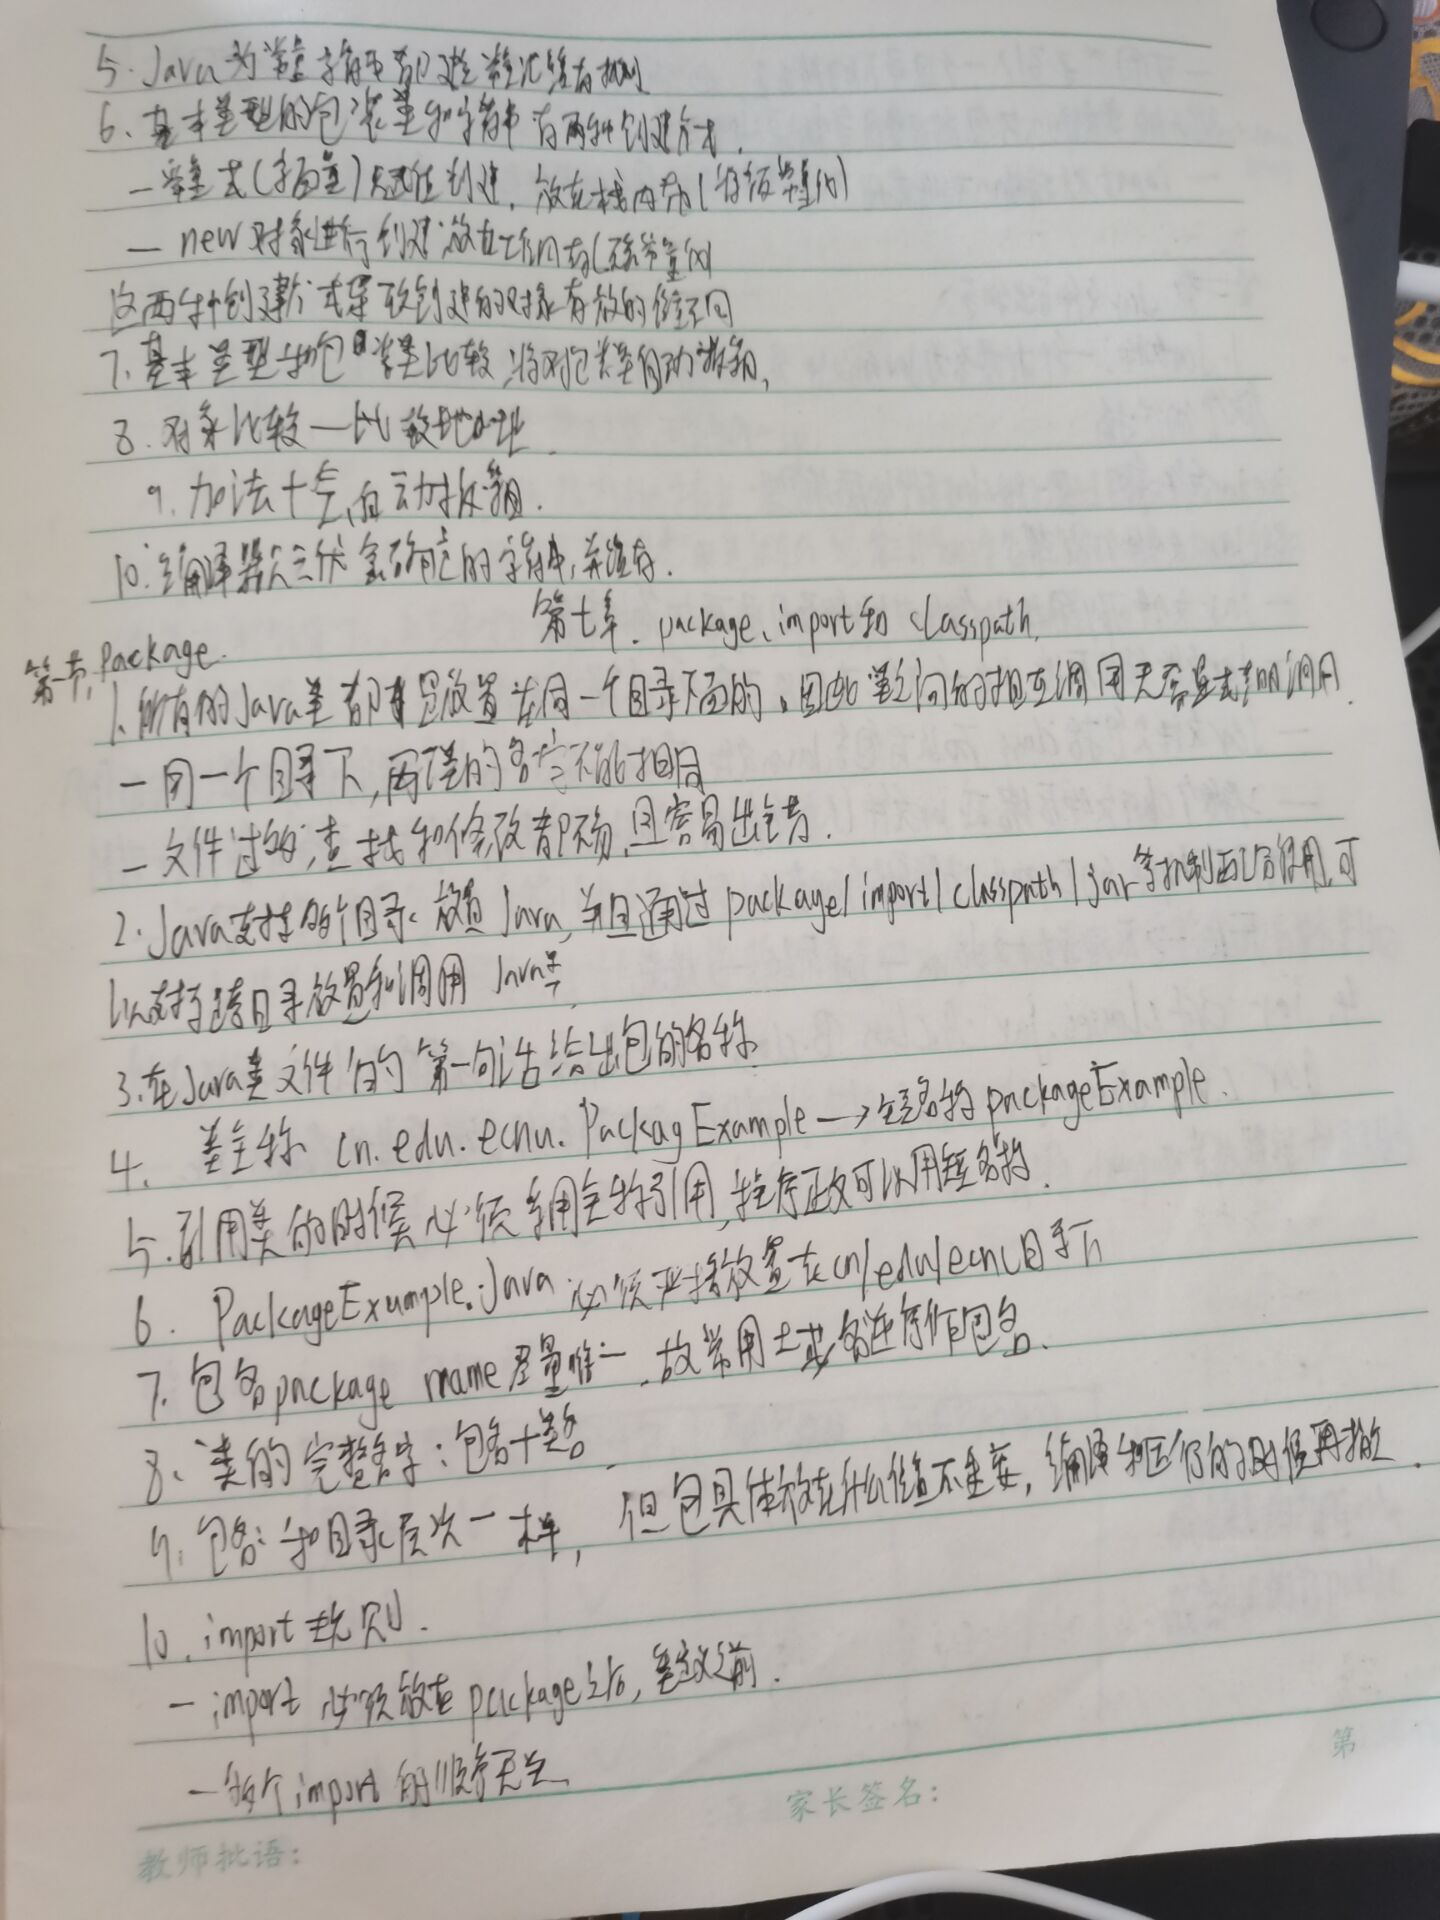 5. Java为常量字符串都建常量池缓存机制
6. 基本类型的包装类和字符串有两种创建方式.
一常量式(字面量)赋值创建, 放在栈内存(将被常量化)
— new对象进行创建放在堆内存(不会常量化)
这两种创建方式导致创建的对象存放的位置不同
7. 基本类型和包装类比较,将对包装类自动拆箱,
8. 对象比较—比较地址.
9. 加法+会自动拆箱.
10. 编译器只会优化确定的字符串,并缓存.
第七章. package、import和classpath.
第一节, Package.
1. 所有的Java类都是放置在同一个目录下面的, 因此类之间的相互调用无需显式声明调用.
一同一个目录下, 两个类的名字不能相同
一文件过多, 查找和修改都不易, 且容易出错.
2. Java支持多个目录放置Java, 并且通过package/import/classpath/jar等机制配合使用,可
以支持跨目录放置和调用Java类.
3. 在Java类文件的第一句话给出包的名称.
4. 类全称 cn.edu.ecnu.PackagExample→短名称packageExample.
5. 引用类的时候必须采用全称引用, 程序正文可以用短名称.
6. PackageExample.java必须严格放置在cn/edu/ecnu目录下
7. 包名package name尽量唯一, 故常用域名逆序作包名.
8、类的完整名字: 包名+类名.
9. 包名: 和目录层次一样, 但包具体放在什么位置不重要, 编译和运行的时候再指定.
10. import规则.
— import必须放在package之后, 类定义之前.
—多个import的顺序无关.
第
家长签名:
教师批语: